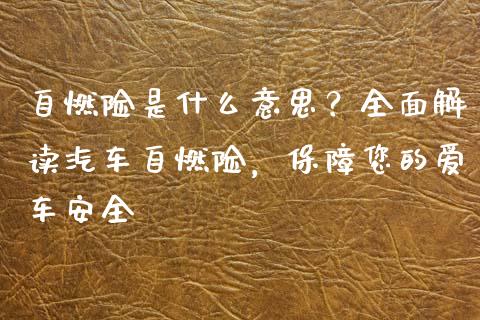 自燃险是什么意思？全面解
读汽车自燃险，保障您的爱
车安全